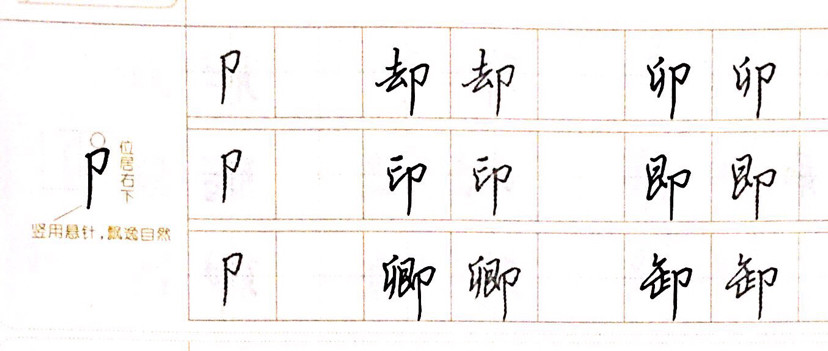 卩 却 却 卯 卯
卩 位居右下
竖用悬针，飘逸自然
卩 印 印 即 即
卩 卿 卿 卸 卸